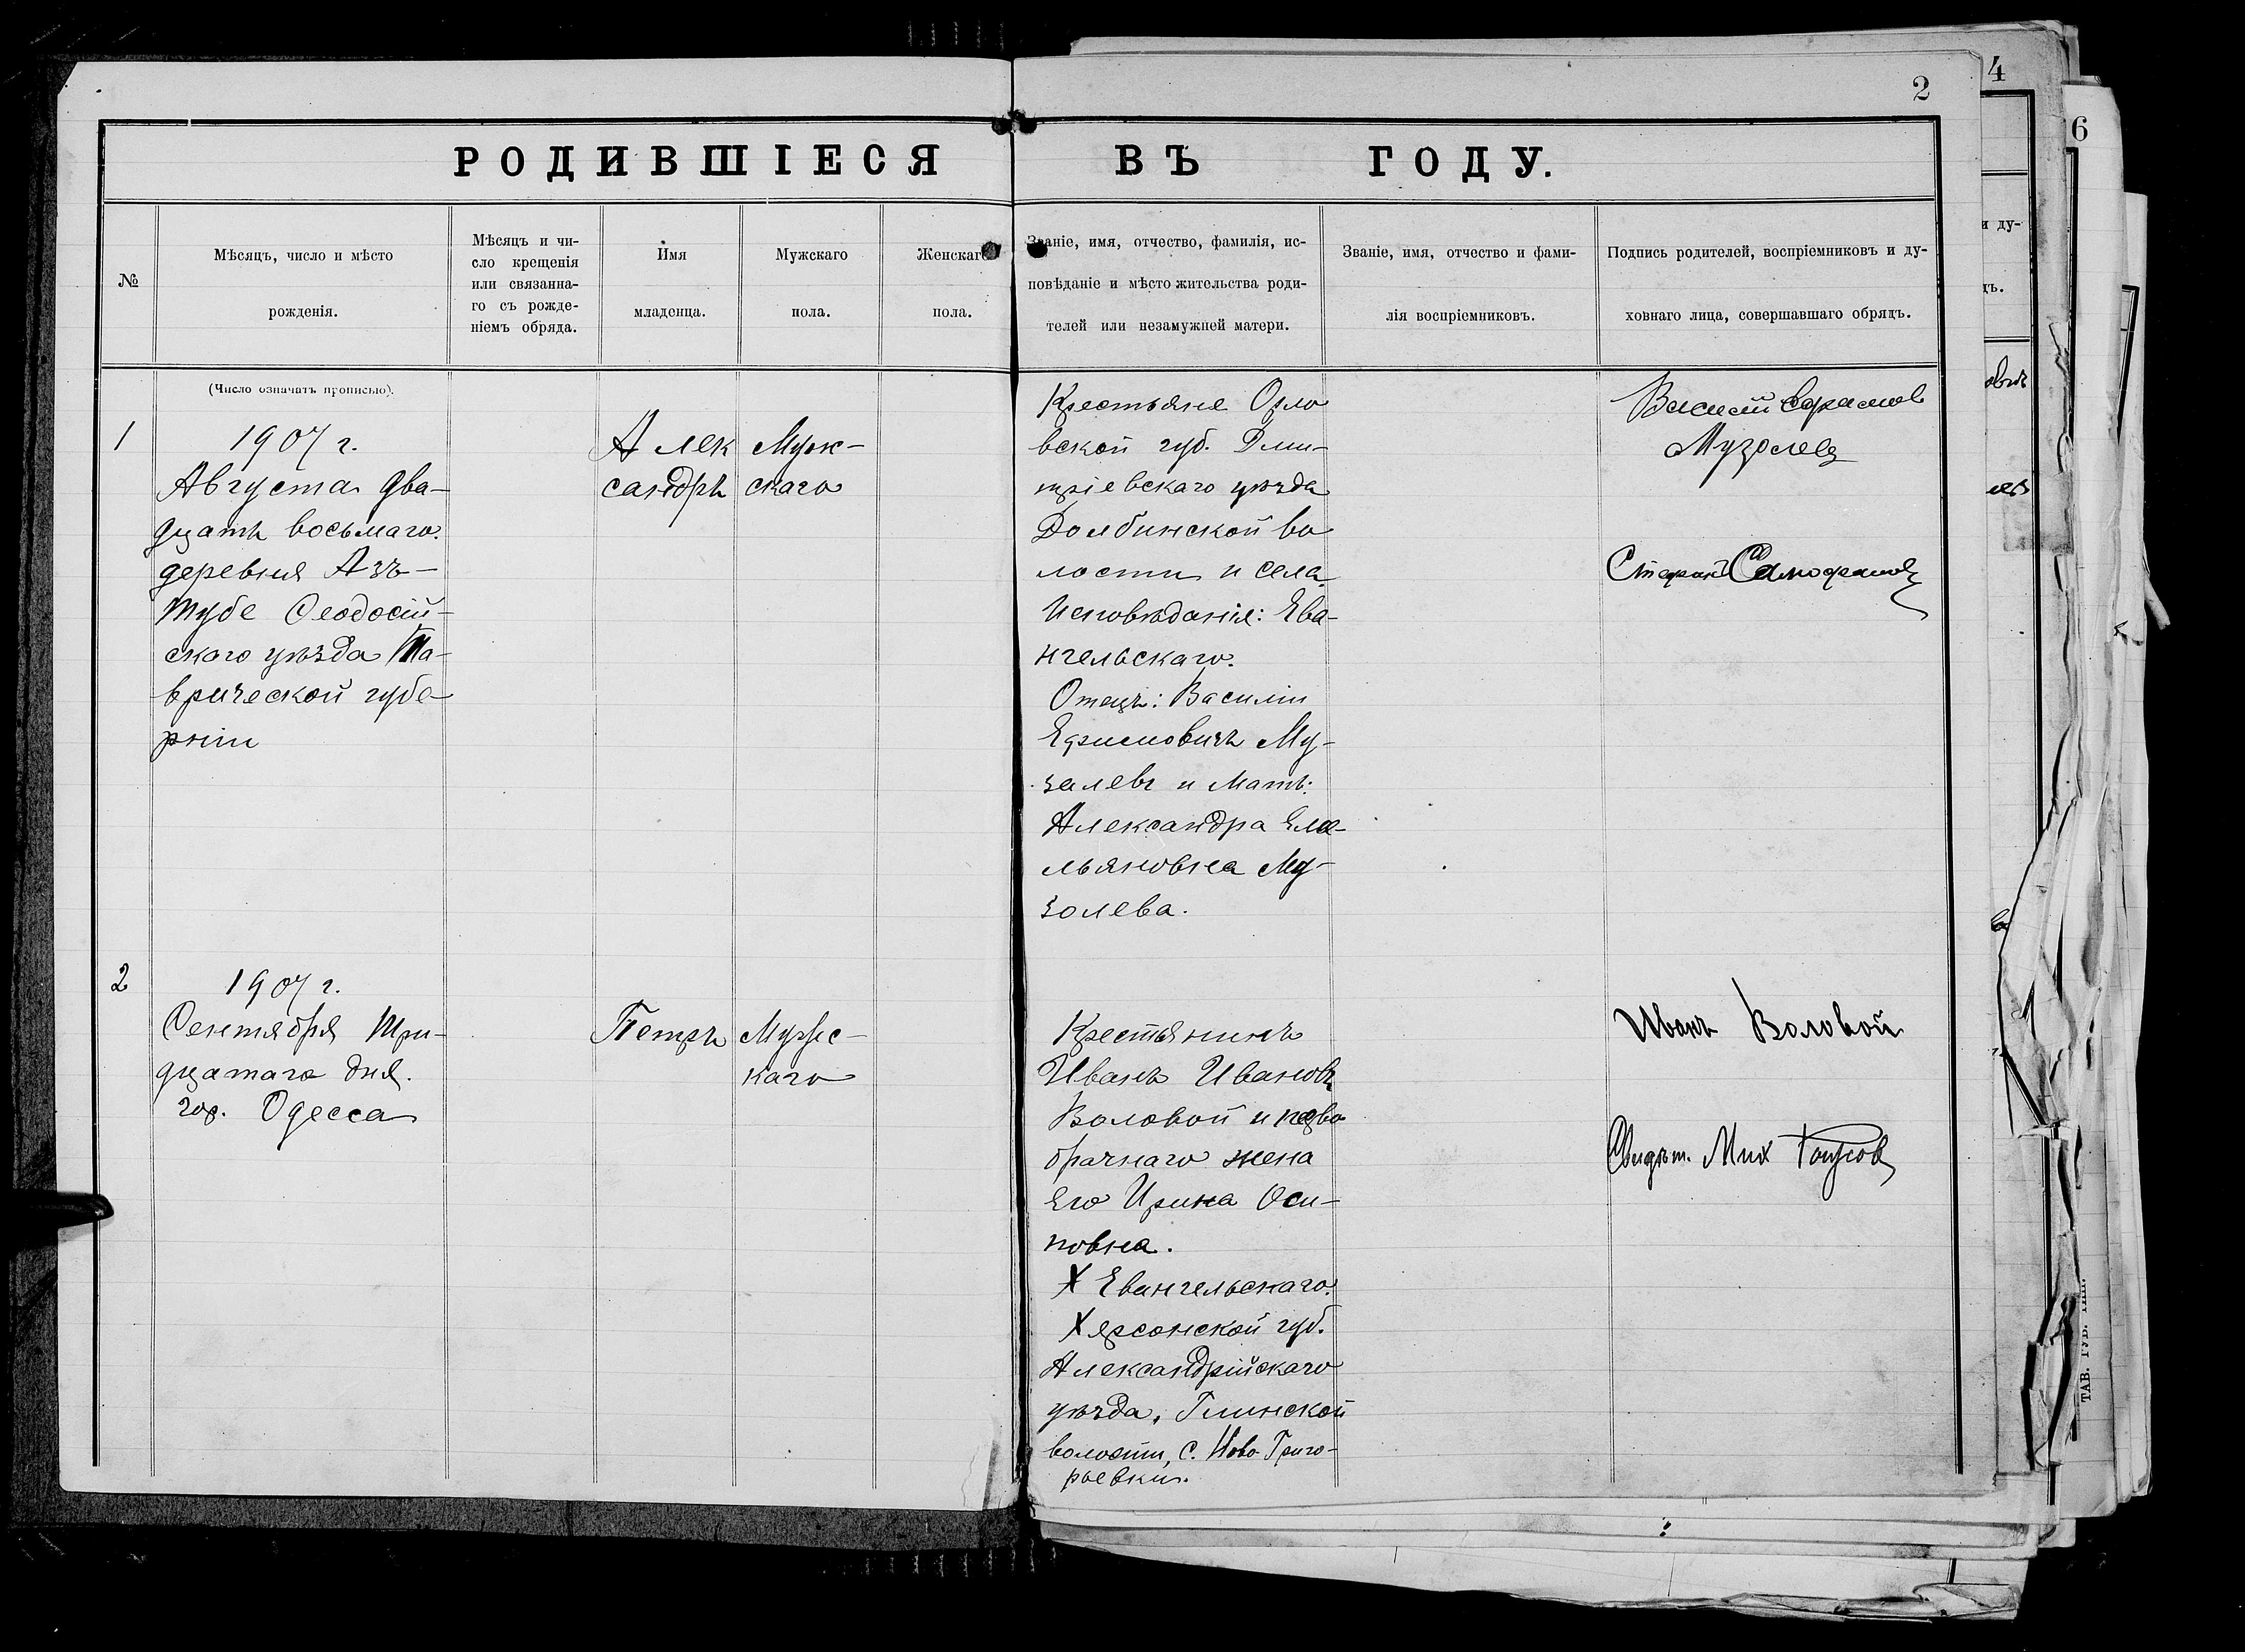 2
4
6
РОДИВШІЕСЯ ВЪ ГОДУ.
№
Мѣсяцъ, число и мѣсто
рожденія.
Мѣсяцъ и чи-
сло крещенія
или связанна-
го съ рожде-
ніемъ обряда.
Имя
младенца.
Мужскаго
пола.
Женскаго
пола.
Званіе, имя, отчество, фамилія, ис-
повѣданіе и мѣсто жительства роди-
телей или незамужней матери.
Званіе, имя, отчество и фами-
лія воспріемниковъ.
Подпись родителей, воспріемниковъ и ду-
ховнаго лица, совершавшаго обрядъ.
(Число означать прописью).
1
1907 г.
Августа два-
дцать восьмаго.
деревня Азъ-
тубе Ѳеодосій-
скаго уѣзда Та-
врической губе-
рніи
Алек
сандръ
Муж-
скаго
Крестьяне Орло
вской губ. Дми-
тріевскаго уѣзда
Долбинской во
лости и села
Исповѣданія: Ева-
нгельскаго.
Отецъ: Василій
Ефимовичъ Му-
залевъ и Мать:
Александра Еме-
льяновна Му-
золева.
Василій
Музолев
Стефанъ
2
1907 г.
Сентября три-
дцатаго дня.
гор. Одесса
Петръ
Мужс-
каго
Крестьянинъ
Иванъ Ивановъ
Воловой и
брачнаго жена
Его Ирина Оси-
повна.
X Евангельскаго.
Херсонской губ.
Александрійскаго
уѣзда, Глинской
волости, с. Ново Григо-
рьевки.
Иванъ Воловой
Свидѣт. Мих
и ду-
ТАВ. ГУБ. ТИП.